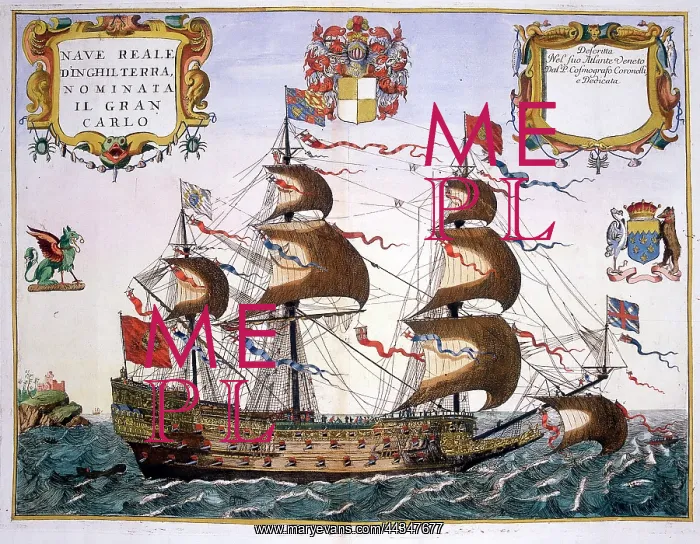 NAVE REALE
D'INGHILTERRA,
NOMINATA
IL GRAN
CARLO
Descritta
Nel suo Atlante Veneto
Dal P. Cosmografo Coronelli
e Dedicata.
ME
PL
ME
PL
www.maryevans.com/44347677